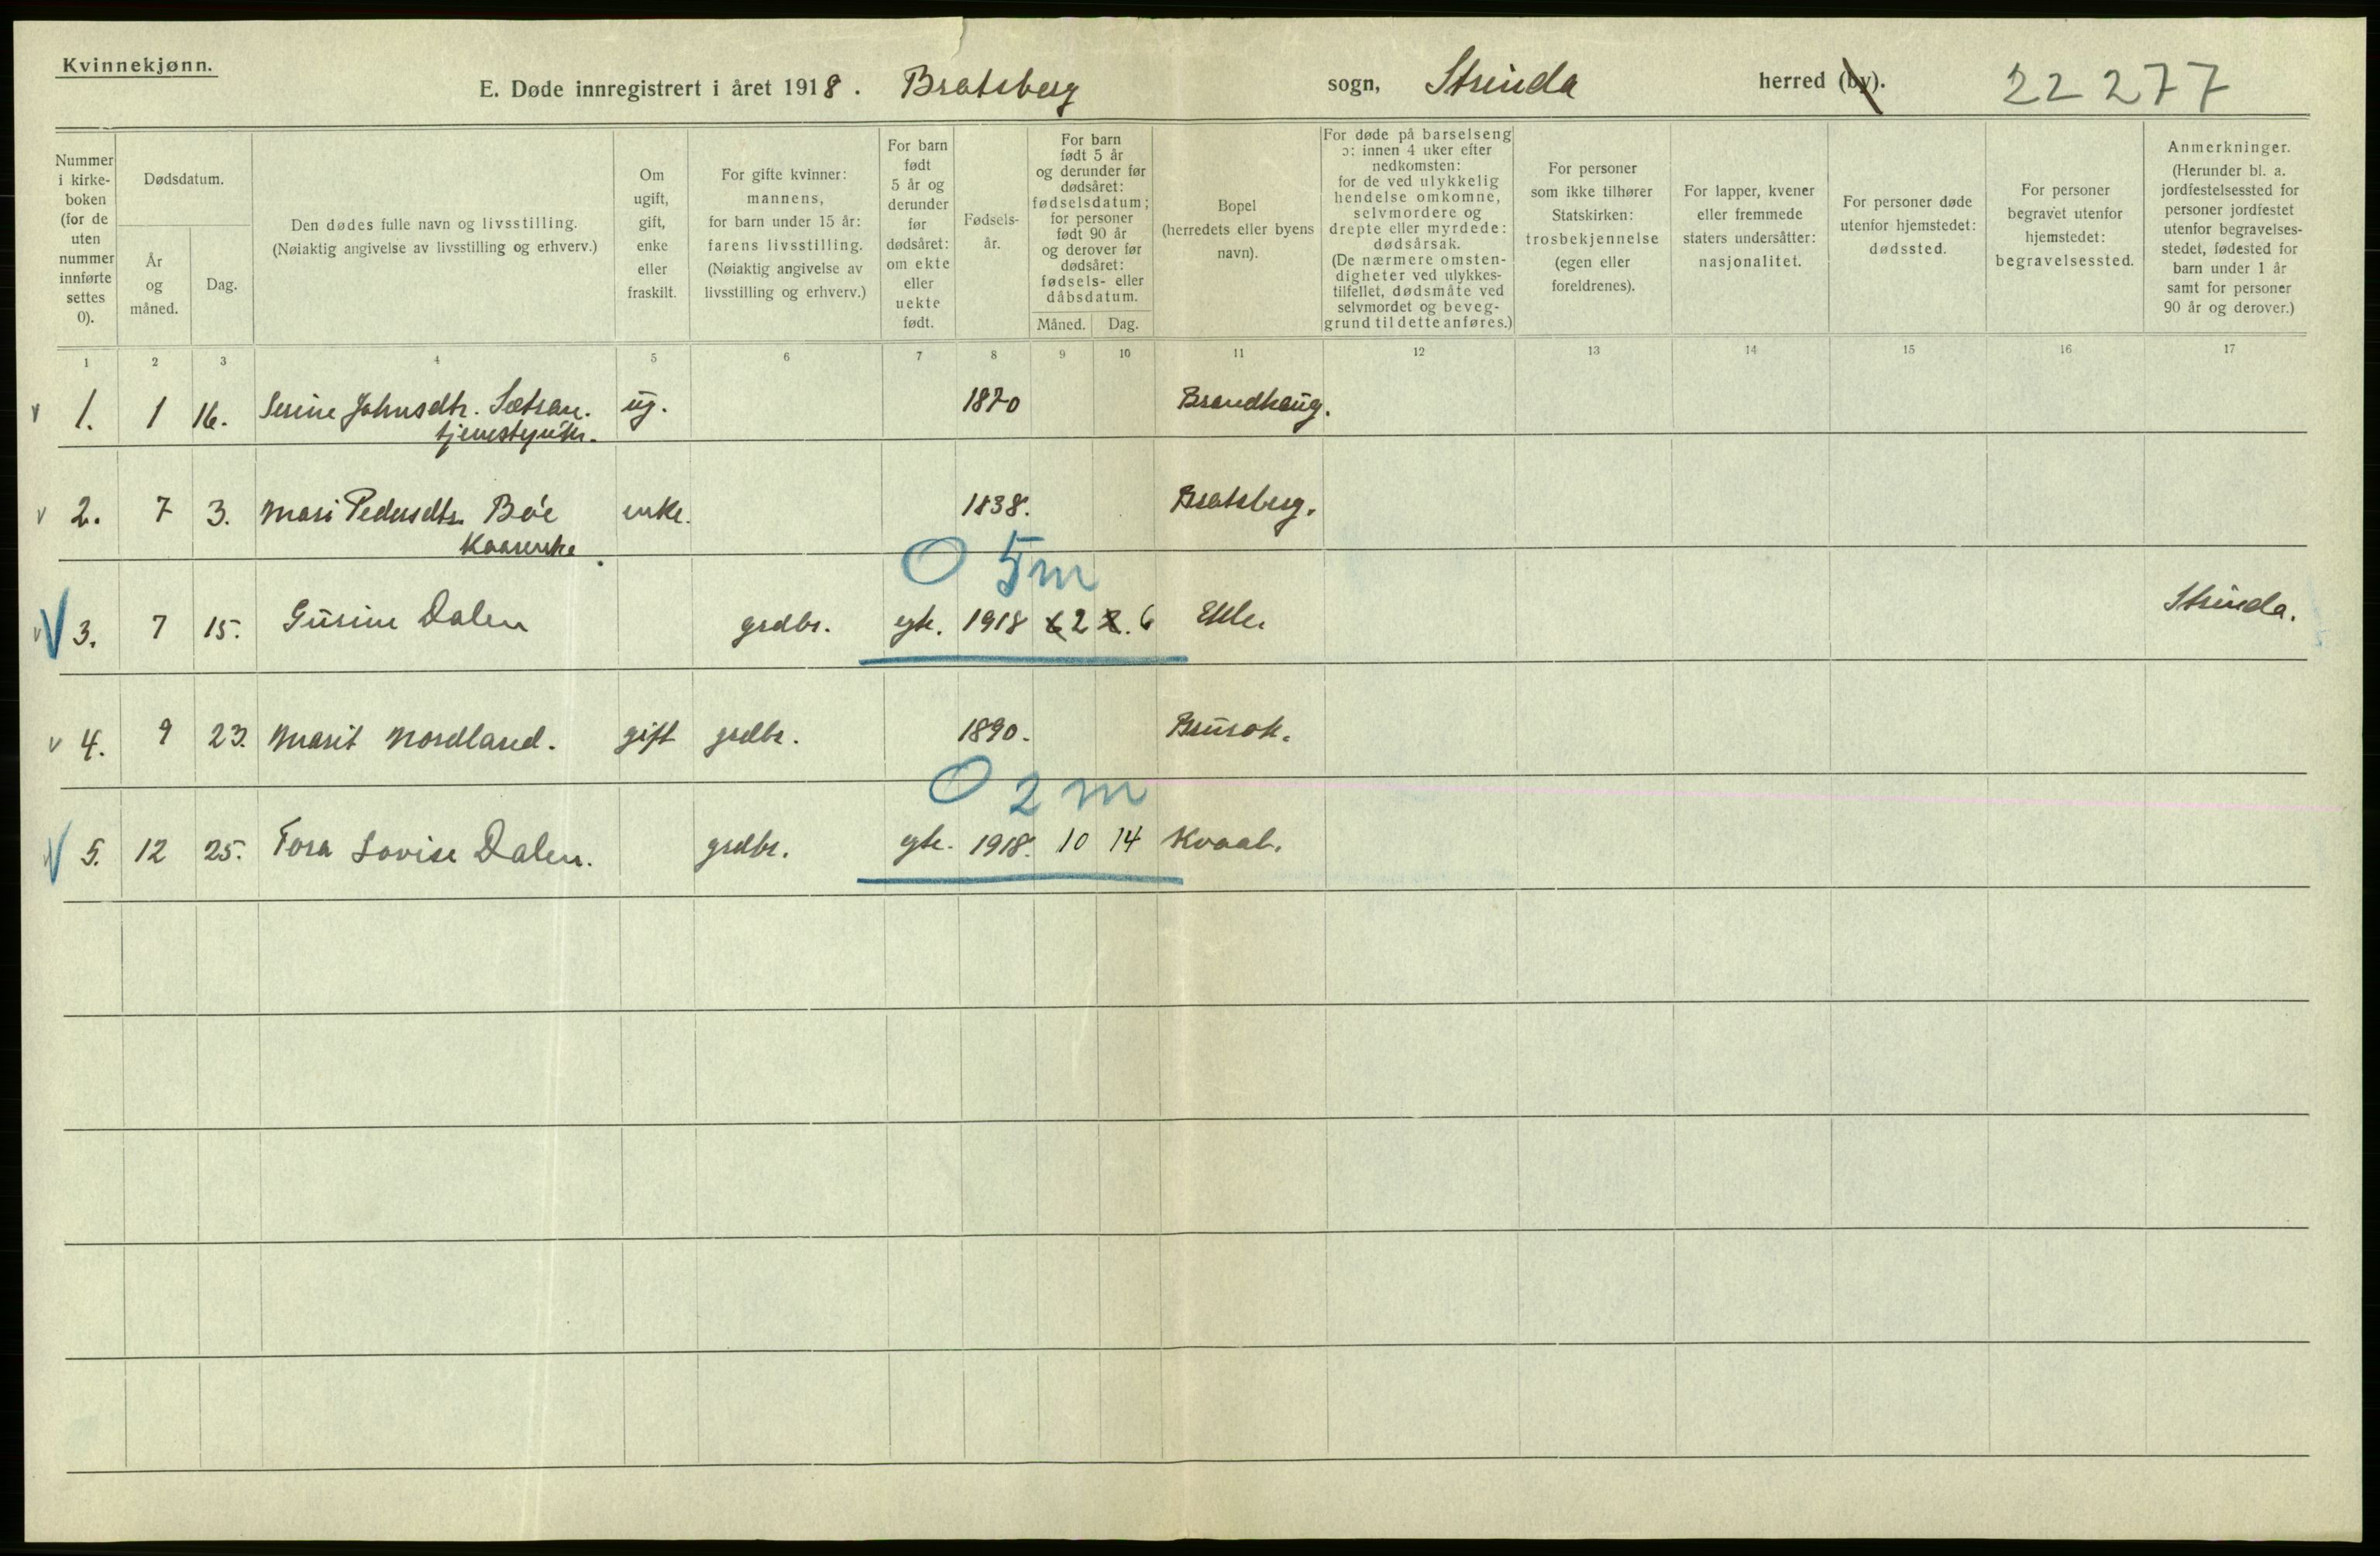 Kvinnekjønn.
E. Døde innregistrert i året 1918. Bratsberg sogn, Strinda herred (by). 22 277
Nummer i kirke-boken (for de uten nummer innførte settes 0).
Dødsdatum.
År og måned.
Dag.
Den dødes fulle navn og livsstilling.
(Nøiaktig angivelse av livsstilling og erhverv.)
Om ugift, gift, enke eller fraskilt.
For gifte kvinner: mannens, for barn under 15 år: farens livsstilling.
(Nøiaktig angivelse av livsstilling og erhverv.)
For barn født 5 år og derunder før dødsåret: om ekte eller uekte født.
Fødsels-år.
For barn født 5 år og derunder før dødsåret: fødselsdatum; for personer født 90 år og derover før dødsåret: fødsels- eller dåbsdatum.
Måned. Dag.
Bopel (herredets eller byens navn).
For døde på barselseng ɔ: innen 4 uker efter nedkomsten: for de ved ulykkelig hendelse omkomne, selvmordere og drepte eller myrdede: dødsårsak.
(De nærmere omsten-digheter ved ulykkes-tilfellet, dødsmåte ved selvmordet og beveg-grund til dette anføres.)
For personer som ikke tilhører Statskirken: trosbekjennelse (egen eller foreldrenes).
For lapper, kvener eller fremmede staters undersåtter: nasjonalitet.
For personer døde utenfor hjemstedet: dødssted.
For personer begravet utenfor hjemstedet: begravelsessted.
Anmerkninger.
(Herunder bl. a. jordfestelsessted for personer jordfestet utenfor begravelses-stedet, fødested for barn under 1 år samt for personer 90 år og derover.)
1 2 3 4 5 6 7 8 9 10 11 12 13 14 15 16 17
v 1. 1 16. Serine Johnsdtr. Sætran. ug. 1870 Brandhaug.
v 2. 7 3. Mari Pedersdtr. Böe enke. 1838. Bratsberg.
Kaarenke.
0 5 m
v 3. 7 15. Gurine Dalen grdbr. egte. 1918 6 2 2. 6 Strinda.
v 4. 9 23. Marit Nordland. gift grdbr. 1890. Brurok.
0 2 m
v 5. 12 25. Tora Lovise Dalen. grdbr. egte. 1918. 10 14 Kvaal.